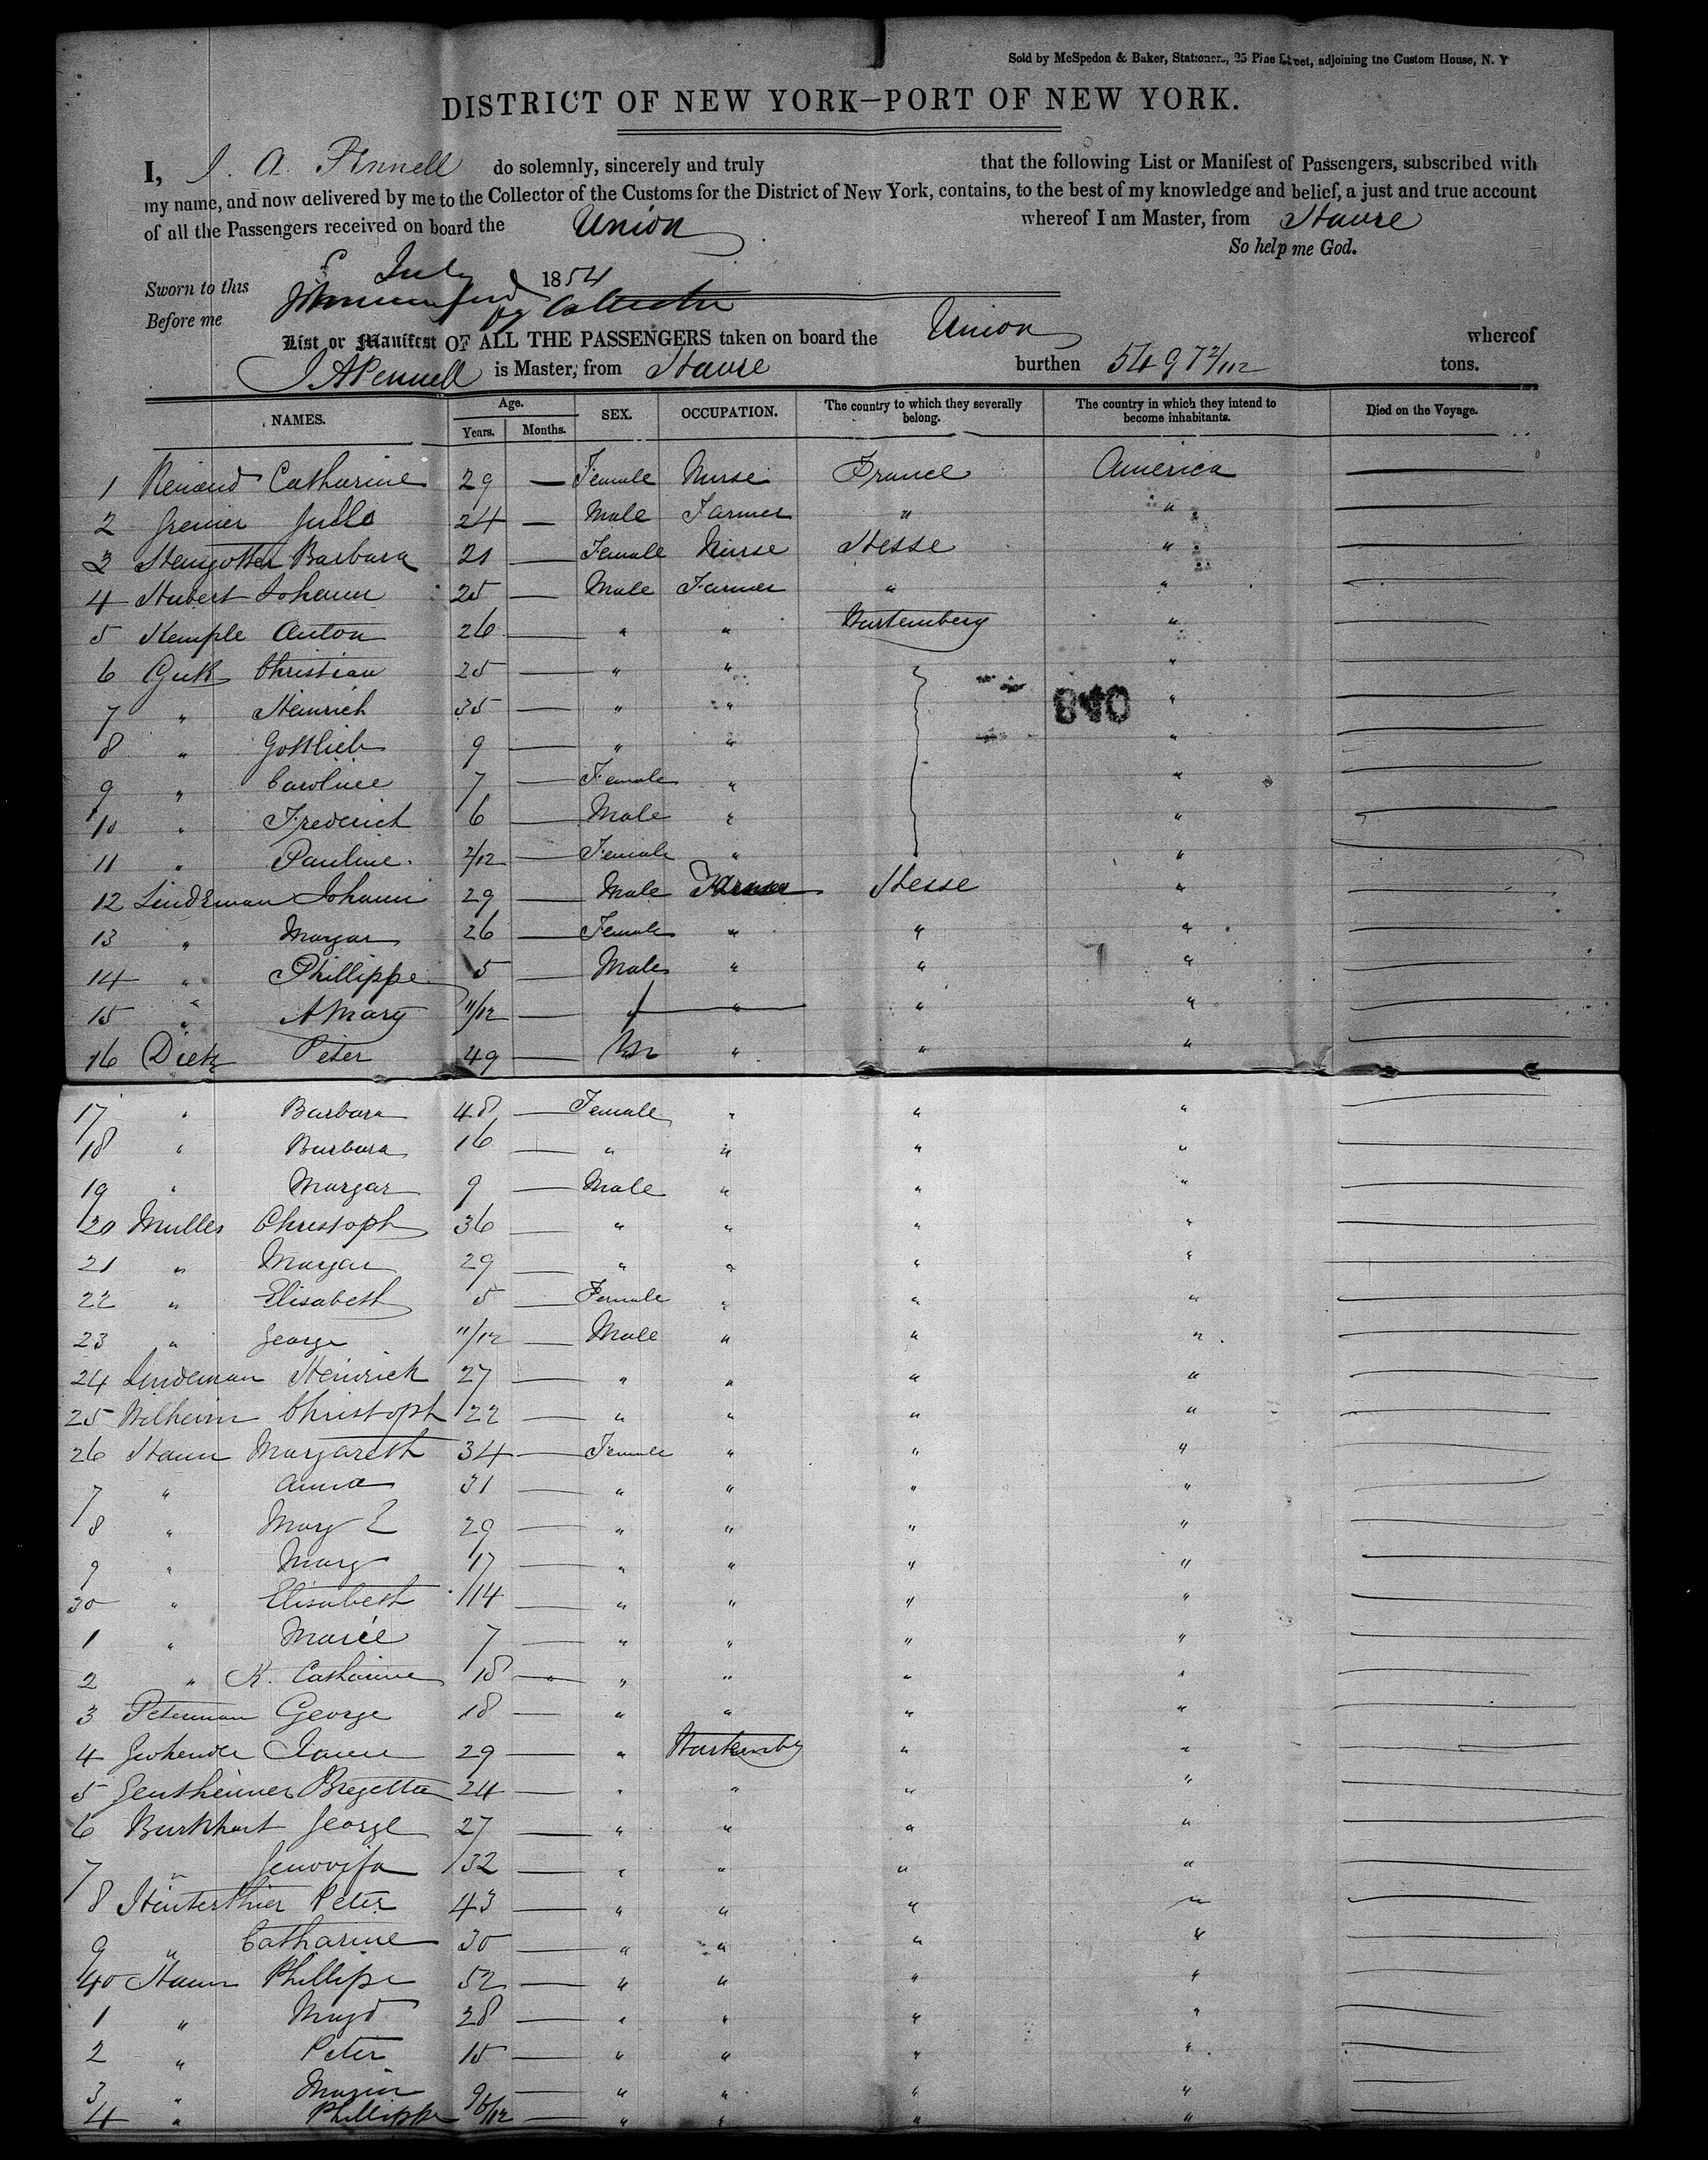 Sold by McSpedon & Baker, Stationers, 25 Pine Street, adjoining the Custom House, N. Y
DISTRICT OF NEW YORK—PORT OF NEW YORK.
I, J. A. Pennell do solemnly, sincerely and truly that the following List or Manifest of Passengers, subscribed with
my name, and now delivered by me to the Collector of the Customs for the District of New York, contains, to the best of my knowledge and belief, a just and true account
of all the Passengers received on board the Union whereof I am Master, from Havre
So help me God.
Sworn to this July 1854
Before me Collector
List or Manifest OF ALL THE PASSENGERS taken on board the Union whereof
J A Pennell is Master, from Havre burthen tons.
NAMES. Age. Years. Months. SEX. OCCUPATION. The country to which they severally belong. The country in which they intend to become inhabitants. Died on the Voyage.
1 Renaud Catharine 29 — Female Nurse France America —
2 Grenier 24 — Male Farmer " " —
3 Barbara 21 — Female Nurse Hesse " —
4 Hubert Johann 25 — Male Farmer " " —
5 Kemple Anton 26 — " " Wurtemberg " —
6 Guk Christian 25 — " " " —
7 " Heinrich 35 — " " " —
840
8 " Gottlieb 9 — " " " —
9 " Caroline 7 — Female " " —
10 " Frederich 6 — Male " " —
11 " Pauline 2/12 — Female " " " —
12 Lindeman Johann 29 — Male Farmer Hesse " —
13 " Margar 26 — Female " " " —
14 " Phillippe 5 — Male " " " —
15 " A Mary 11/12 — f " " " —
16 Dietz Peter 49 — M " " " —
17 " Barbara 48 — Female " " " —
18 " Barbara 16 — " " " " —
19 " Margar 9 — Male " " " —
20 Muller Christoph 36 — " " " " —
21 " Margar 29 — " " " " —
22 " Elisabeth 5 — Female " " " —
23 " George 11/12 — Male " " " —
24 Lindeman Heinrich 27 — " " " " —
25 Wilheim Christoph 22 — " " " " —
26 Haun Margareth 34 — Female " " " —
7 " Anna 31 — " " " " —
8 " Mary E 29 — " " " " —
9 " Marg 17 — " " " " —
30 " Elisabeth 14 — " " " " —
1 " Marie 7 — " " " " —
2 " K. Catharine 18 — " " " " —
3 Peterman George 18 — " " " " —
4 29 — " Wurtemby " " —
5 Gensheimer Bregetta 24 — " " " " —
6 Burkhart George 27 — " " " " —
7 " Genovifa 32 — " " " " —
8 Hinterthier Peter 43 — " " " " —
9 " Catharine 30 — " " " " —
40 Haun Phillipe 52 — " " " " —
1 " Magd 28 — " " " " —
2 " Peter 15 — " " " " —
3 " 9 — " " " " —
4 " Phillippe 6/12 — " " " " —